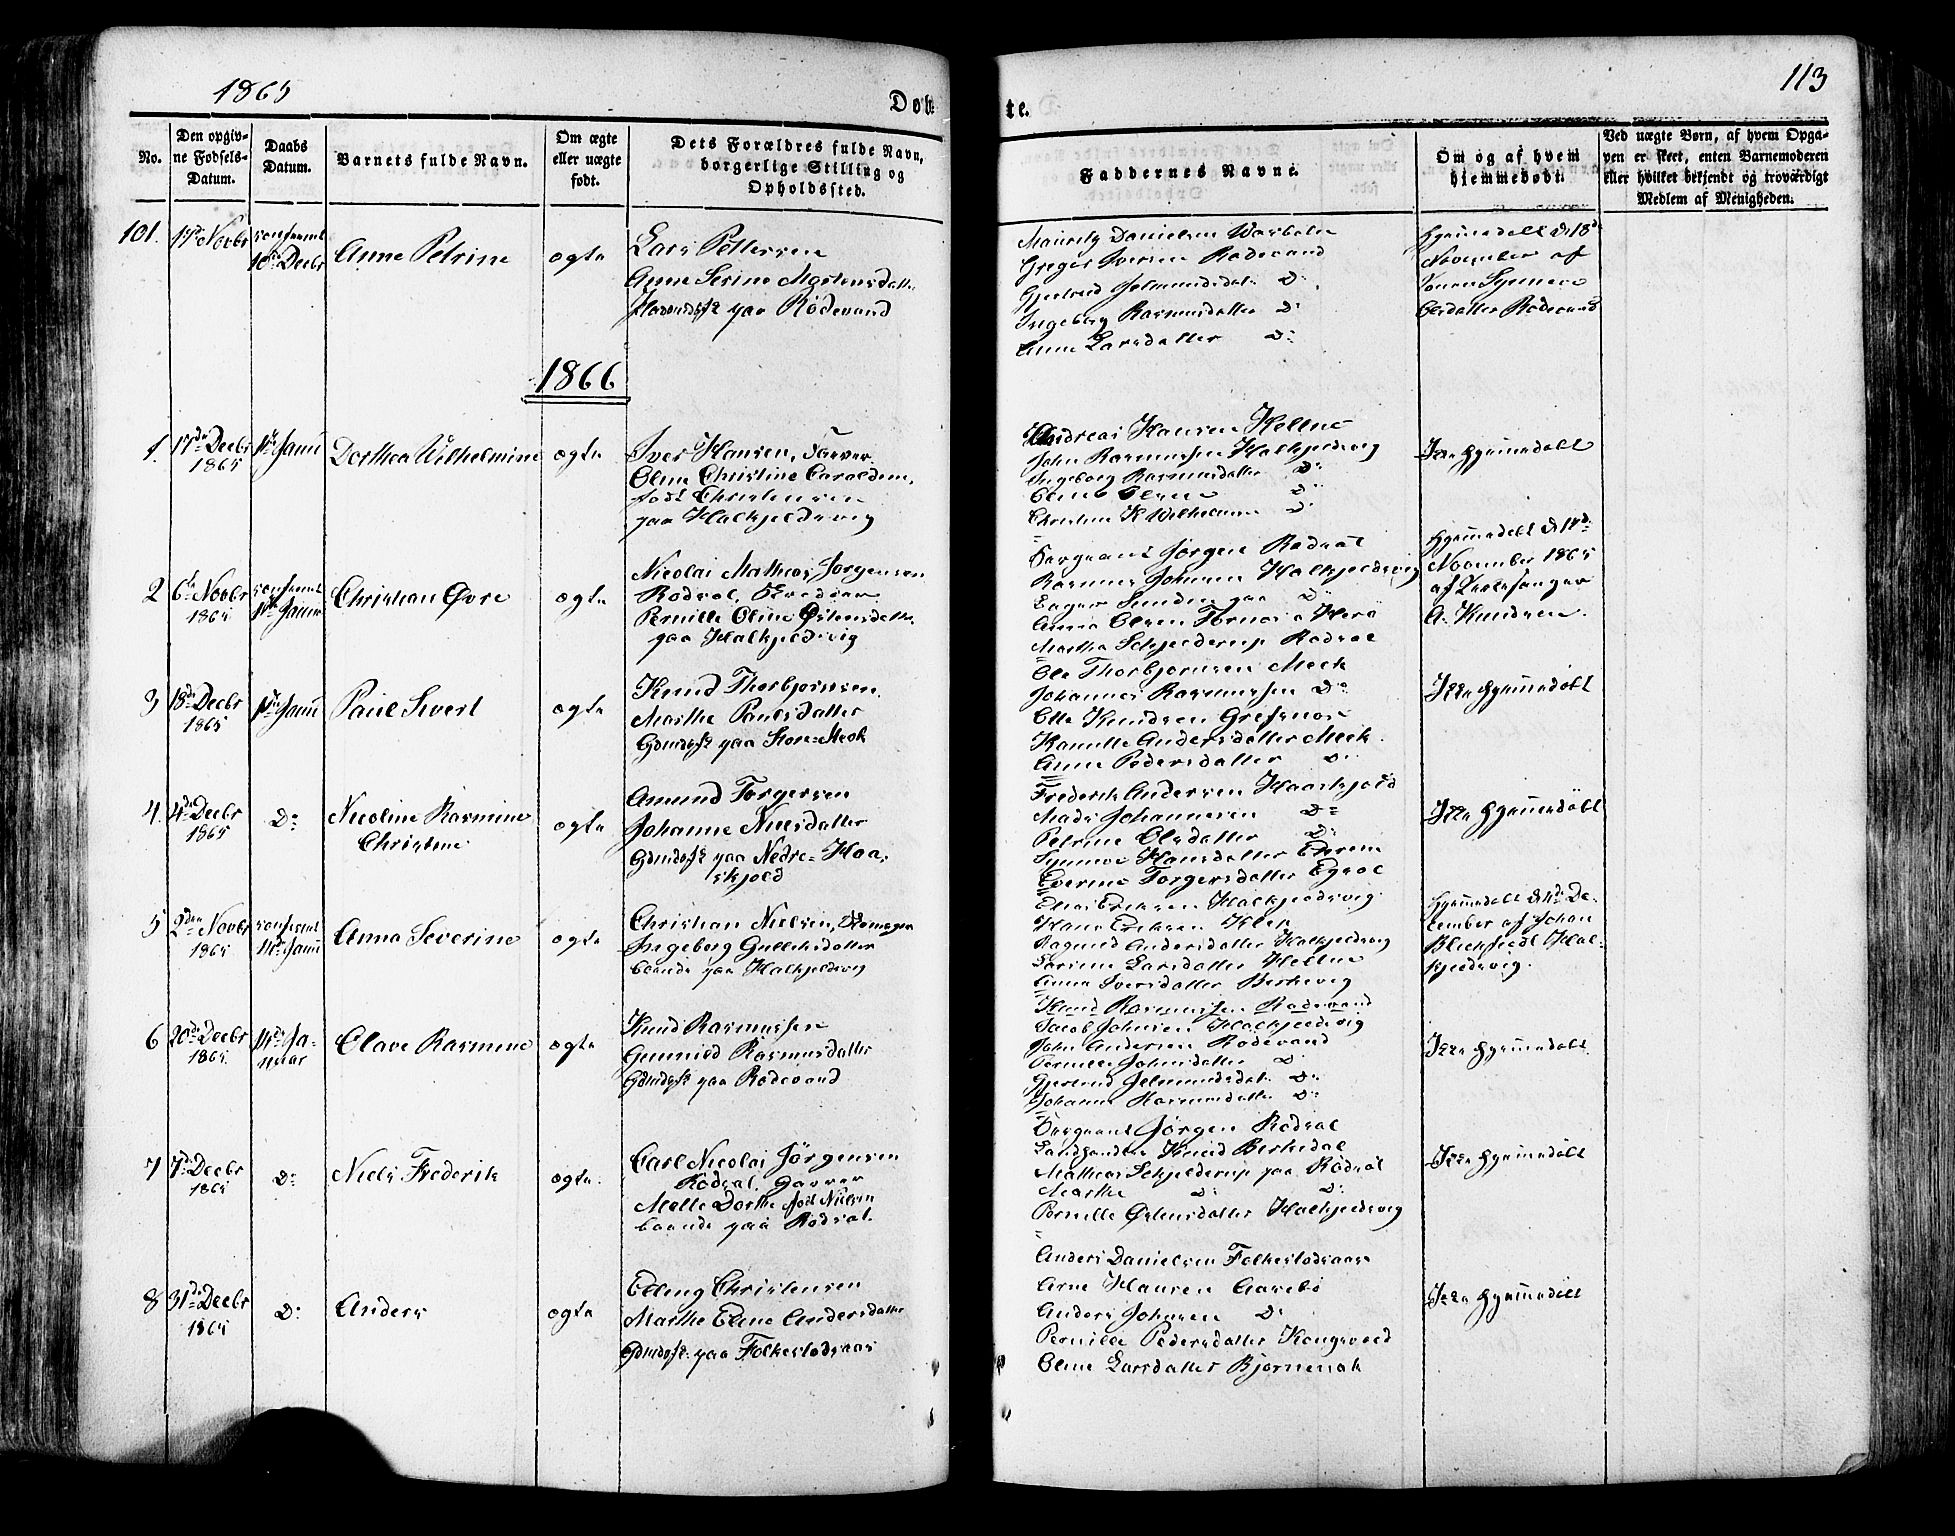 1865
Døb-
te.
113
No.
Den opgiv-
ne Fødsels-
Datum.
Daabs
Datum.
Barnets fulde Navn.
Om ægte
eller uægte
født.
Dets Forældres fulde Navn,
borgerlige Stilling og
Opholdssted.
Faddernes Navne.
Om og af hvem
hjemmedøbt.
Ved uægte Børn, af hvem Opga-
ven er skeet, enten Barnemoderen
eller hvilket bekjendt og troværdigt
Medlem af Menigheden.
101.
17de Novbr
confirmt
10de Decbr
Anne Petrine
ægte
Lars Pettersen
Anne Serine Mortensdatter
paa Rødevand
Mauritz Danielsen
Greger Iversen Rødevand
Gjertrud D:
Ingeborg Rasmusdatter D:
Anne Larsdatter D:
Hjemmedøbt d. 18de
November af
Rødevand
1866
1.
17de Decbr
1865
1ste Janu
Dorthea Wilhelmine
ægte
Iver Hansen, Farver
Oline Christine
født Christensen
paa Halkjeldsvig
Andreas Hansen Heltne
John Rasmussen Halkjeldsvig
Ingeborg Rasmusdatter D:
Oline Olsen D:
Christine K. D:
Ikke hjemmedøbt
2
6te Novbr
1865
confirmt
1ste Janu
Christian Øvre
ægte
Nicolai Mathias Jørgensen
Rødsæt,
Pernille Oline Østensdatter
paa Halkjeldsvig
Sergeant Jørgen Rødsæt
Rasmus Johnsen Halkjeldsvig
paa D:
Anna Olsen
Martha Schjelderup Rødsæt
Hjemmedøbt d. 17de
November 1865
af Kirkesanger
A. Knudsen.
3
18de Decbr
1865
1ste Janu
Paul Sivert
ægte
Knud Thorbjørnsen
Marthe Paulsdatter
Gdmdsfk paa Store-Meek
Ole Thorbjørnsen Meek
Johannes Rasmussen D:
Otte Knudsen Grefsnæs
Andersdatter Meek
Anne Pedersdatter D:
Ikke hjemmedøbt
4.
4de Decbr
1865
D:
Nicoline Rasmine
Christine
ægte
Amund Torgersen
Johanne Nielsdatter
Gdmdsfk paa Nedre-Haa-
skjold
Frederik Andersen Haaskjold
Mads Johannesen D:
Petrine Olsdatter D:
Synneve Hansdatter
Severine Torgersdatter Egset
Ikke hjemmedøbt
5
2den Novbr
1865
confirmt
1ste Janu
Anna Severine
ægte
Christian Nielsen, Skomager
Ingeborg
boende paa Halkjeldsvig
Elias Eriksen Halkjeldsvig
Hans Eriksen
Andersdatter Halkjeldsvig
Larsdatter Heltne
Anna Iversdatter
Hjemmedøbt d. 4de De-
cember af Johan
Hal-
kjeldsvig.
6
20de Decbr
1865
14de Ja-
nuar
Olave Rasmine
ægte
Knud Rasmussen
Gunnild Rasmusdatter
Gdmdsfk paa Rødevand
Knud Rasmussen Rødevand
Jacob Johnsen Halkjeldsvig
John Andersen Rødevand
Pernille Johnsdatter D:
Gjertrud D:
Johanne Rasmusdatter D:
Ikke hjemmedøbt
7
7de Decbr
1865
D:
Niels Frederik
ægte.
Carl Nicolai Jørgensen
Rødsæt, Garver
Malle Dorthe født Nielsen
boende paa Rødsæt.
Sergeant Jørgen Rødsæt
Landhandler Knud Birkedal
Mathias Schjelderup paa Rødsæt
Marthe D: D:
Pernille Østensdatter Halkjeldsvig
Ikke hjemmedøbt
8
31de Decbr
1865
D:
Anders
ægte
Elling Christensen
Marthe Eline Andersdatter
Gdmdsfk paa Folkestadsaas
Anders Danielsen Folkestadsaas
Arne Hansen Aarebø
Anders Johnsen D:
Pernille Pedersdatter Kongsvold
Oline Larsdatter
Ikke hjemmedøbt